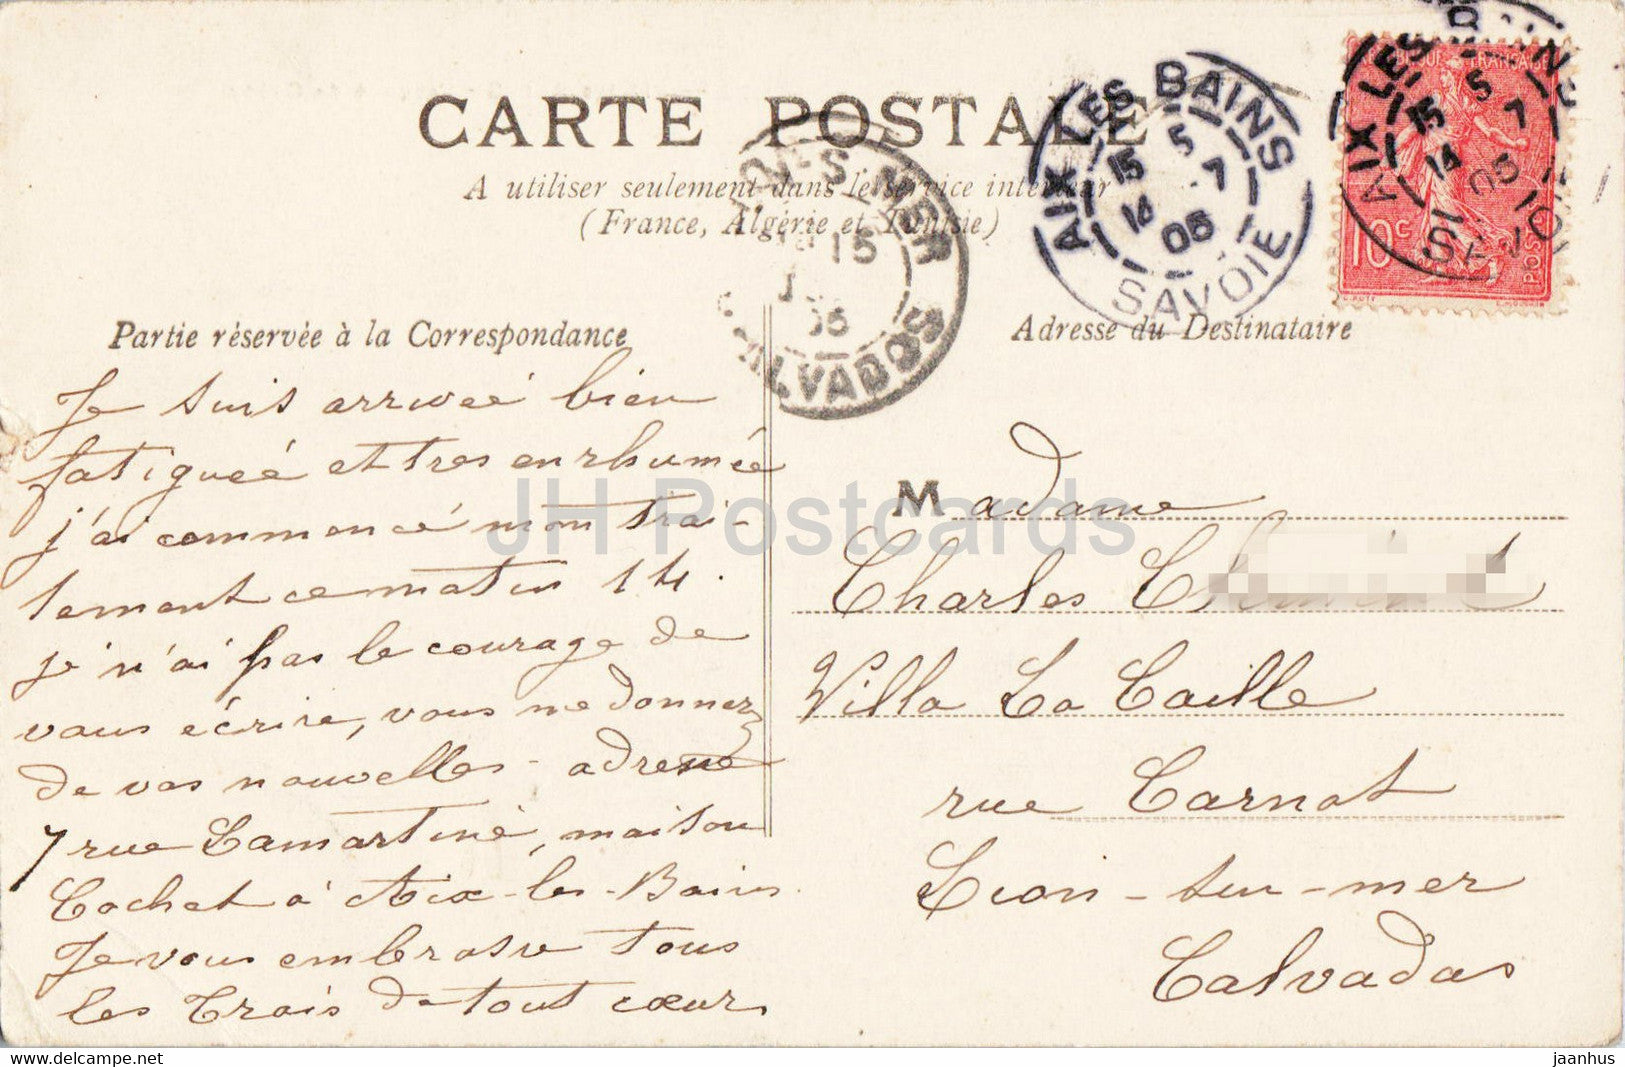 CARTE POSTALE
A utiliser seulement dans le service intérieur
(France, Algérie et Tunisie)
AIX LES BAINS
15 5
14 -7
06
SAVOIE
AIX LES
15 5
14 7
05
SAVOIE
FRANÇAISE
10c
POSTES
S-MER
15
05
CALVADOS
Partie réservée à la Correspondance
Adresse du Destinataire
Je suis arriveé bien
fatigueé et tres enrhumée
j'ai commencé mon trai-
tement ce matin 14.
je n'ai pas le courage de
vous écrire, vous me donnerez
de vos nouvelles - adresse
7 rue Lamartine, maison
Cochet à Aix-les-Bains
Je vous embrasse tous
les trois de tout cœur
Madame
Charles
Villa La Caille
rue Carnot
Lion-sur-mer
Calvados
JH Postcards
jaanhus